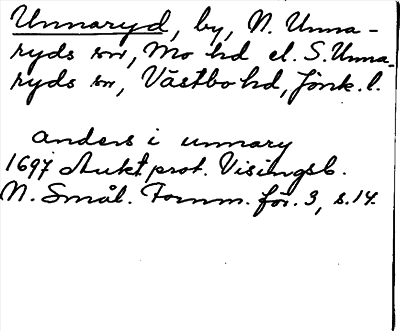 Unnaryd, by, N. Unna-
ryds sn, Mo hd el. S. Unna-
ryds sn, Västbo hd, Jönk. l.
anders i unnary
1697 Aukt prot. Visingsb.
N. Smål. Fornm. för. 3, s. 14.